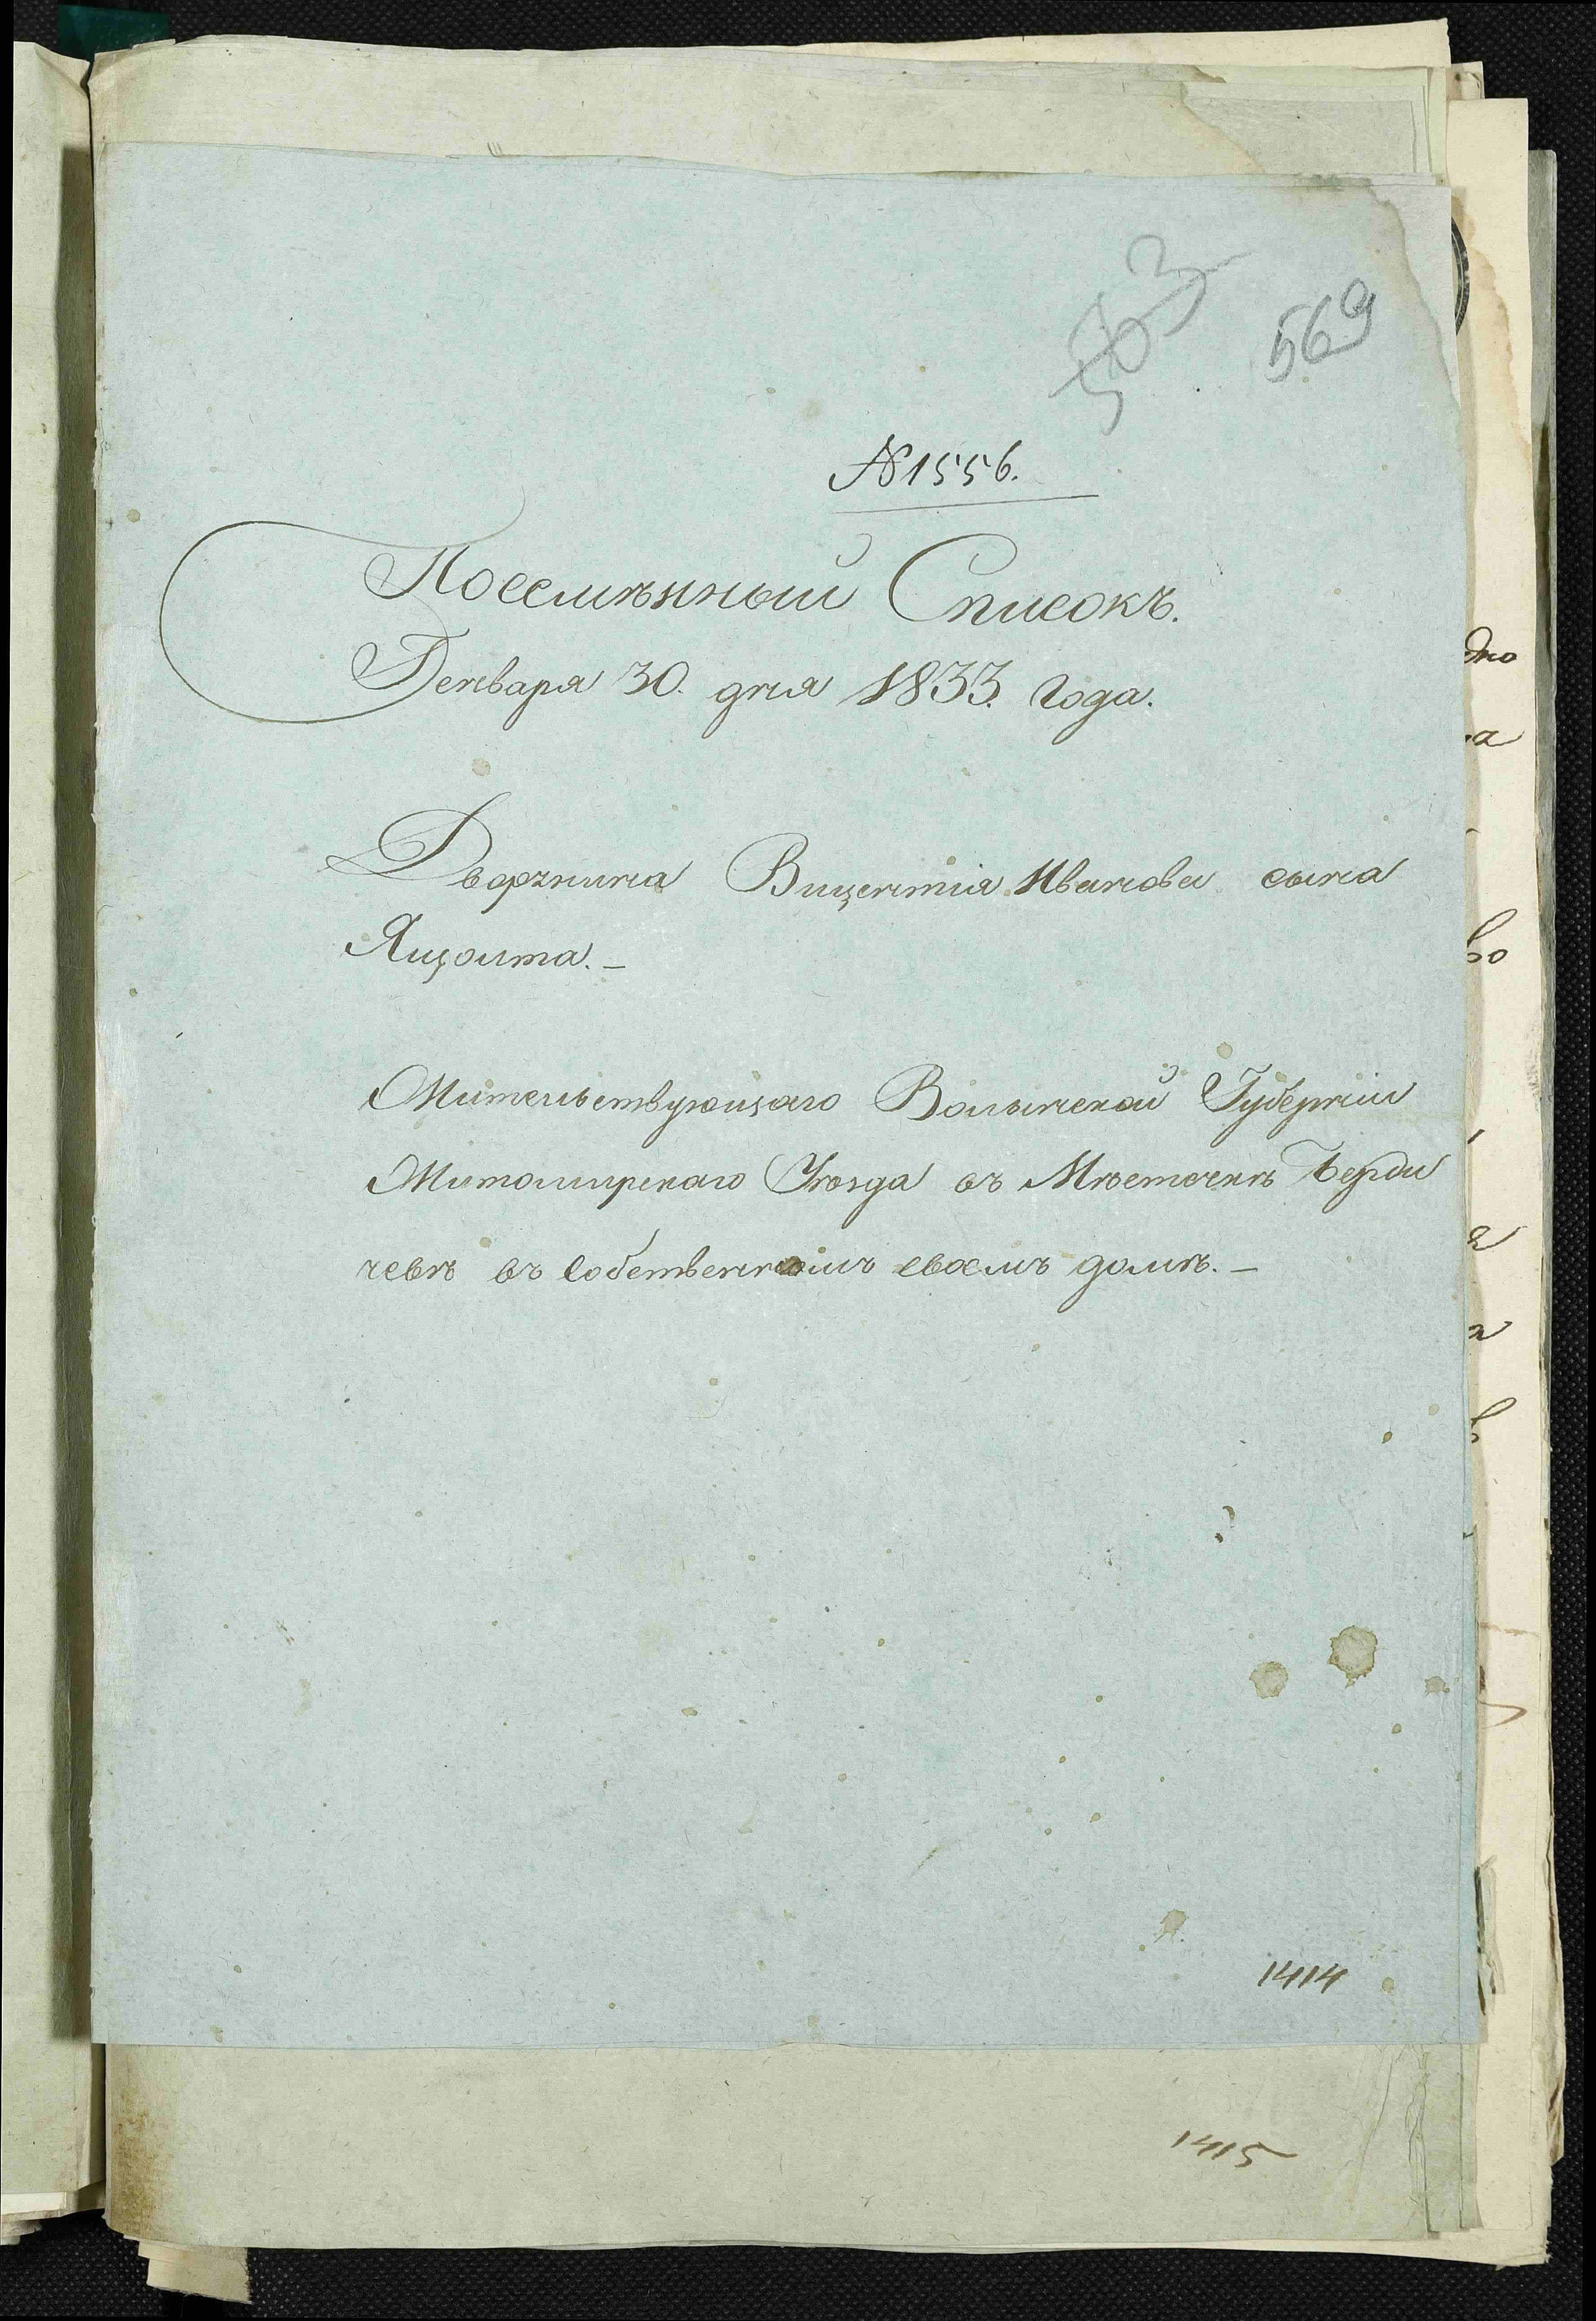 503
569
№ 1556.
Посемѣнный Списокъ.
Генваря 30. дня 1833. Года.
Дворянина Вицентія Иванова сына
Яцолта. –
Жительствующаго Волынской Губерніи
Житомирскаго Уѣзда въ Мѣстечкѣ Берди
чевѣ въ Собственномъ своемъ домѣ. –
1414
1415